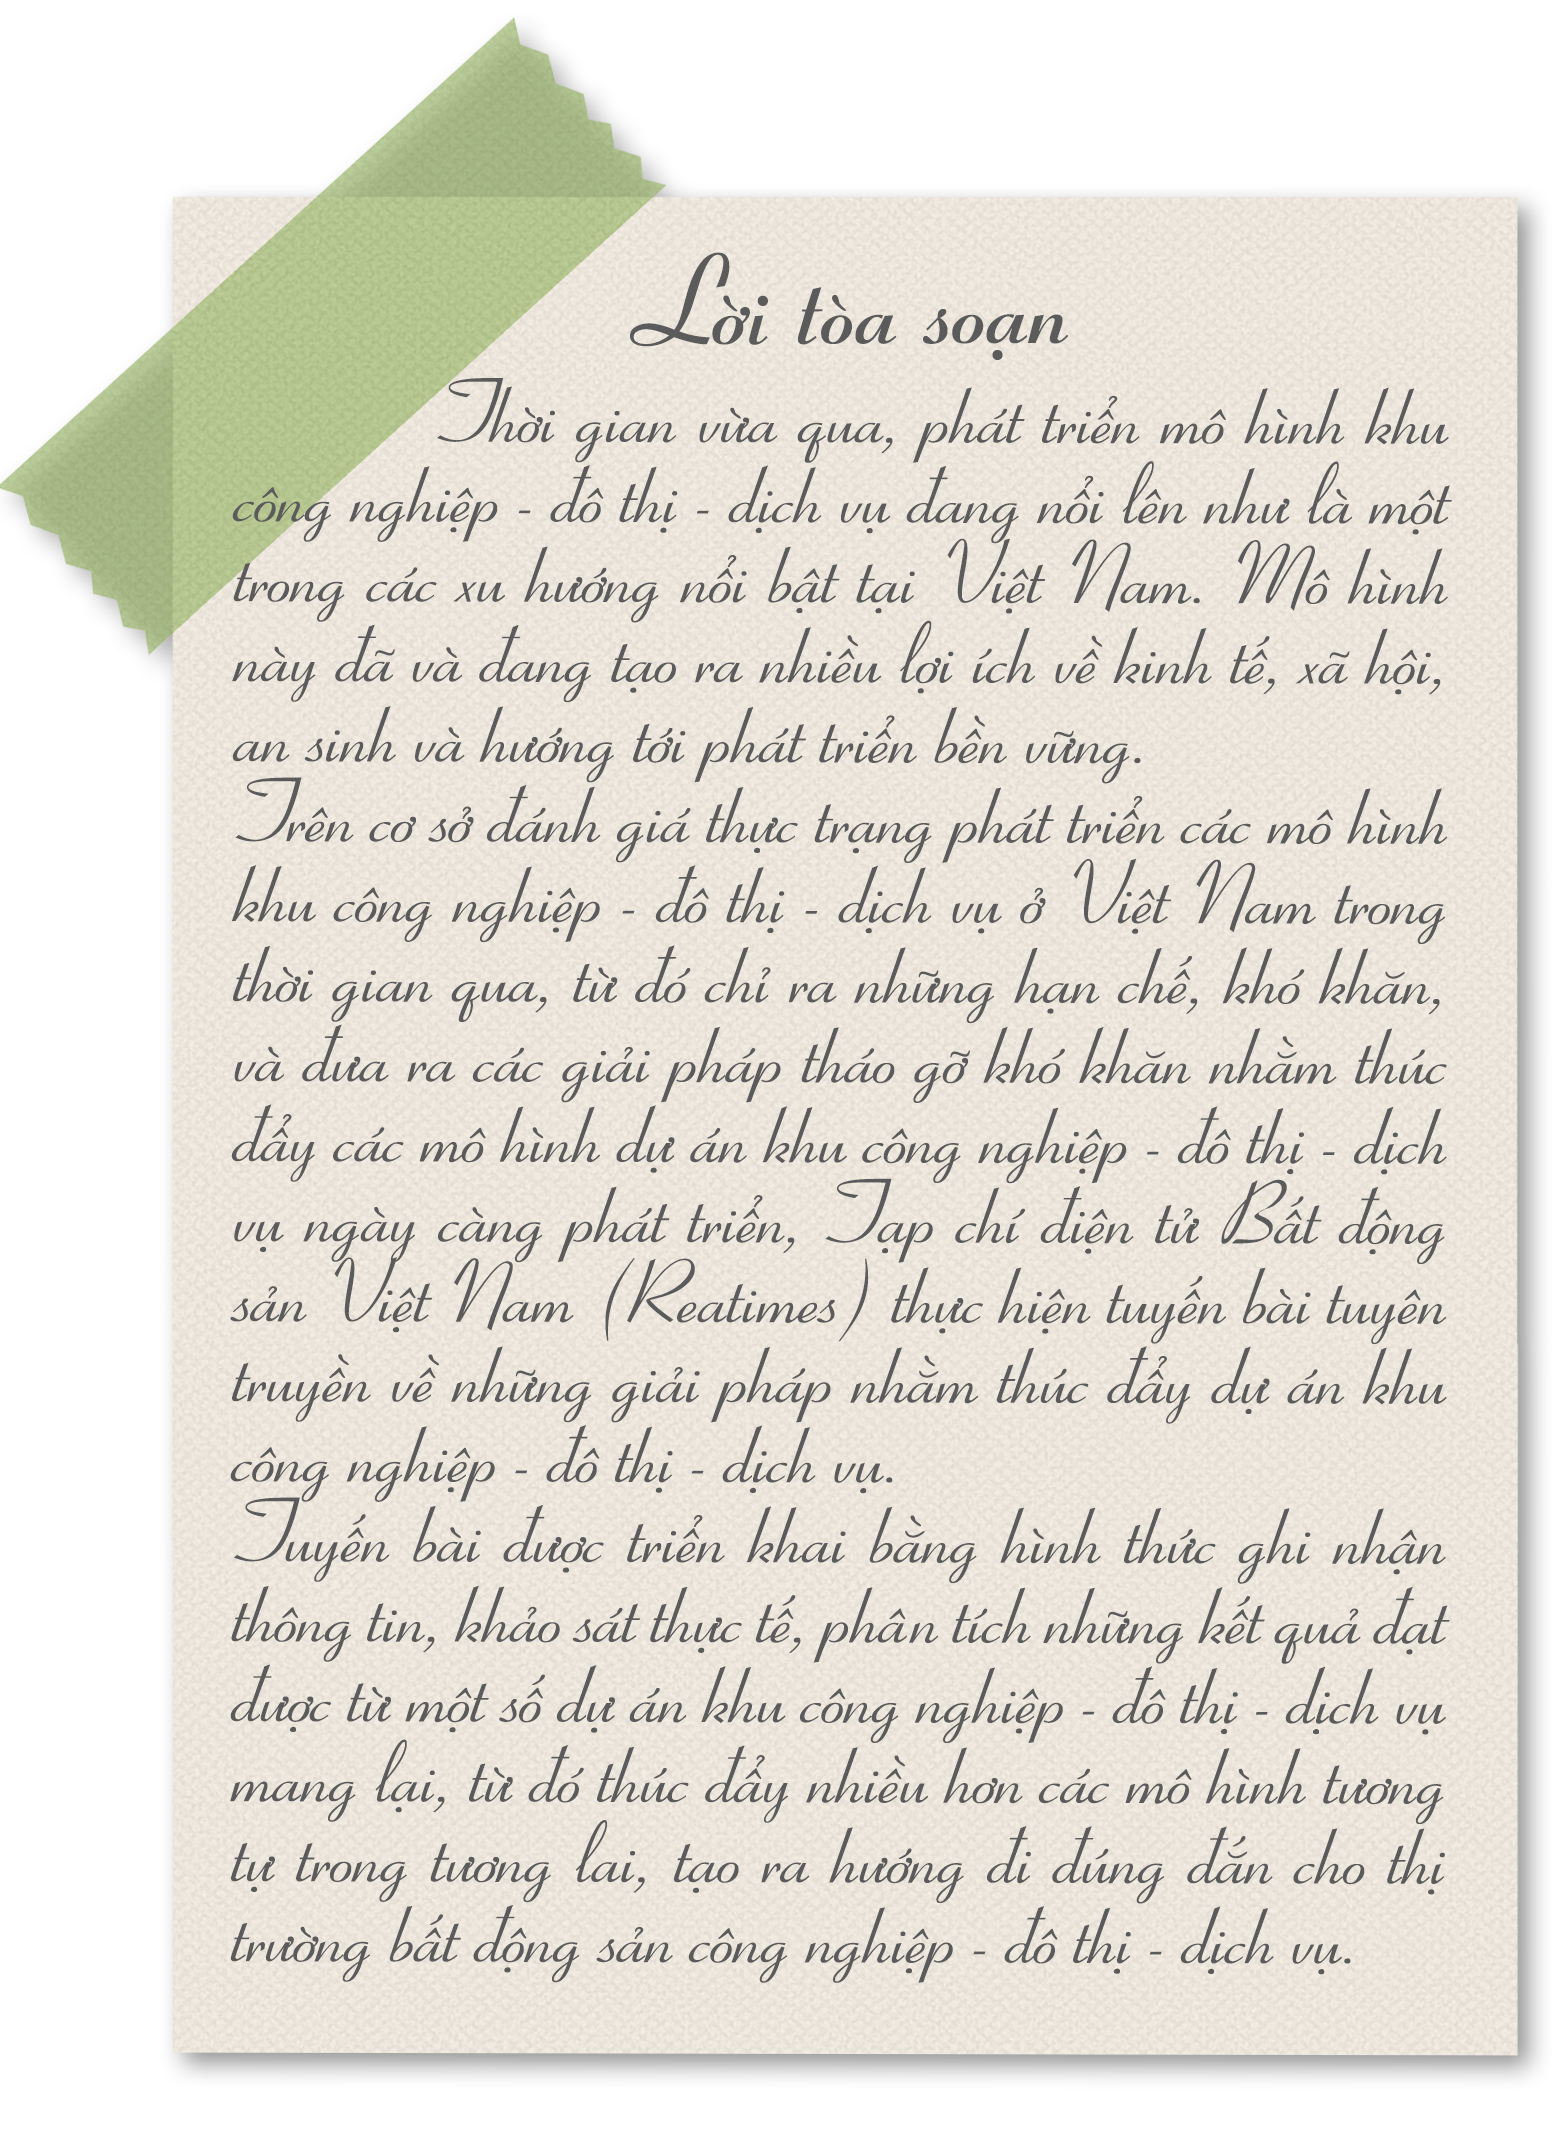 Lời tòa soạn
Thời gian vừa qua, phát triển mô hình khu
công nghiệp - đô thị - dịch vụ đang nổi lên như là một
trong các xu hướng nổi bật tại Việt Nam. Mô hình
này đã và đang tạo ra nhiều lợi ích về kinh tế, xã hội,
an sinh và hướng tới phát triển bền vững.
Trên cơ sở đánh giá thực trạng phát triển các mô hình
khu công nghiệp - đô thị - dịch vụ ở Việt Nam trong
thời gian qua, từ đó chỉ ra những hạn chế, khó khăn,
và đưa ra các giải pháp tháo gỡ khó khăn nhằm thúc
đẩy các mô hình dự án khu công nghiệp - đô thị - dịch
vụ ngày càng phát triển, Tạp chí điện tử Bất động
sản Việt Nam (Reatimes) thực hiện tuyến bài tuyên
truyền về những giải pháp nhằm thúc đẩy dự án khu
công nghiệp - đô thị - dịch vụ.
Tuyến bài được triển khai bằng hình thức ghi nhận
thông tin, khảo sát thực tế, phân tích những kết quả đạt
được từ một số dự án khu công nghiệp - đô thị - dịch vụ
mang lại, từ đó thúc đẩy nhiều hơn các mô hình tương
tự trong tương lai, tạo ra hướng đi đúng đắn cho thị
trường bất động sản công nghiệp - đô thị - dịch vụ.